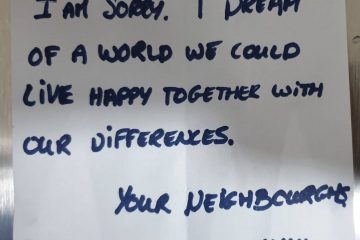 I AM SORRY. I DREAM
OF A WORLD WE COULD
LIVE HAPPY TOGETHER WITH
OUR DIFFERENCES.
YOUR NEIGHBOURGHS